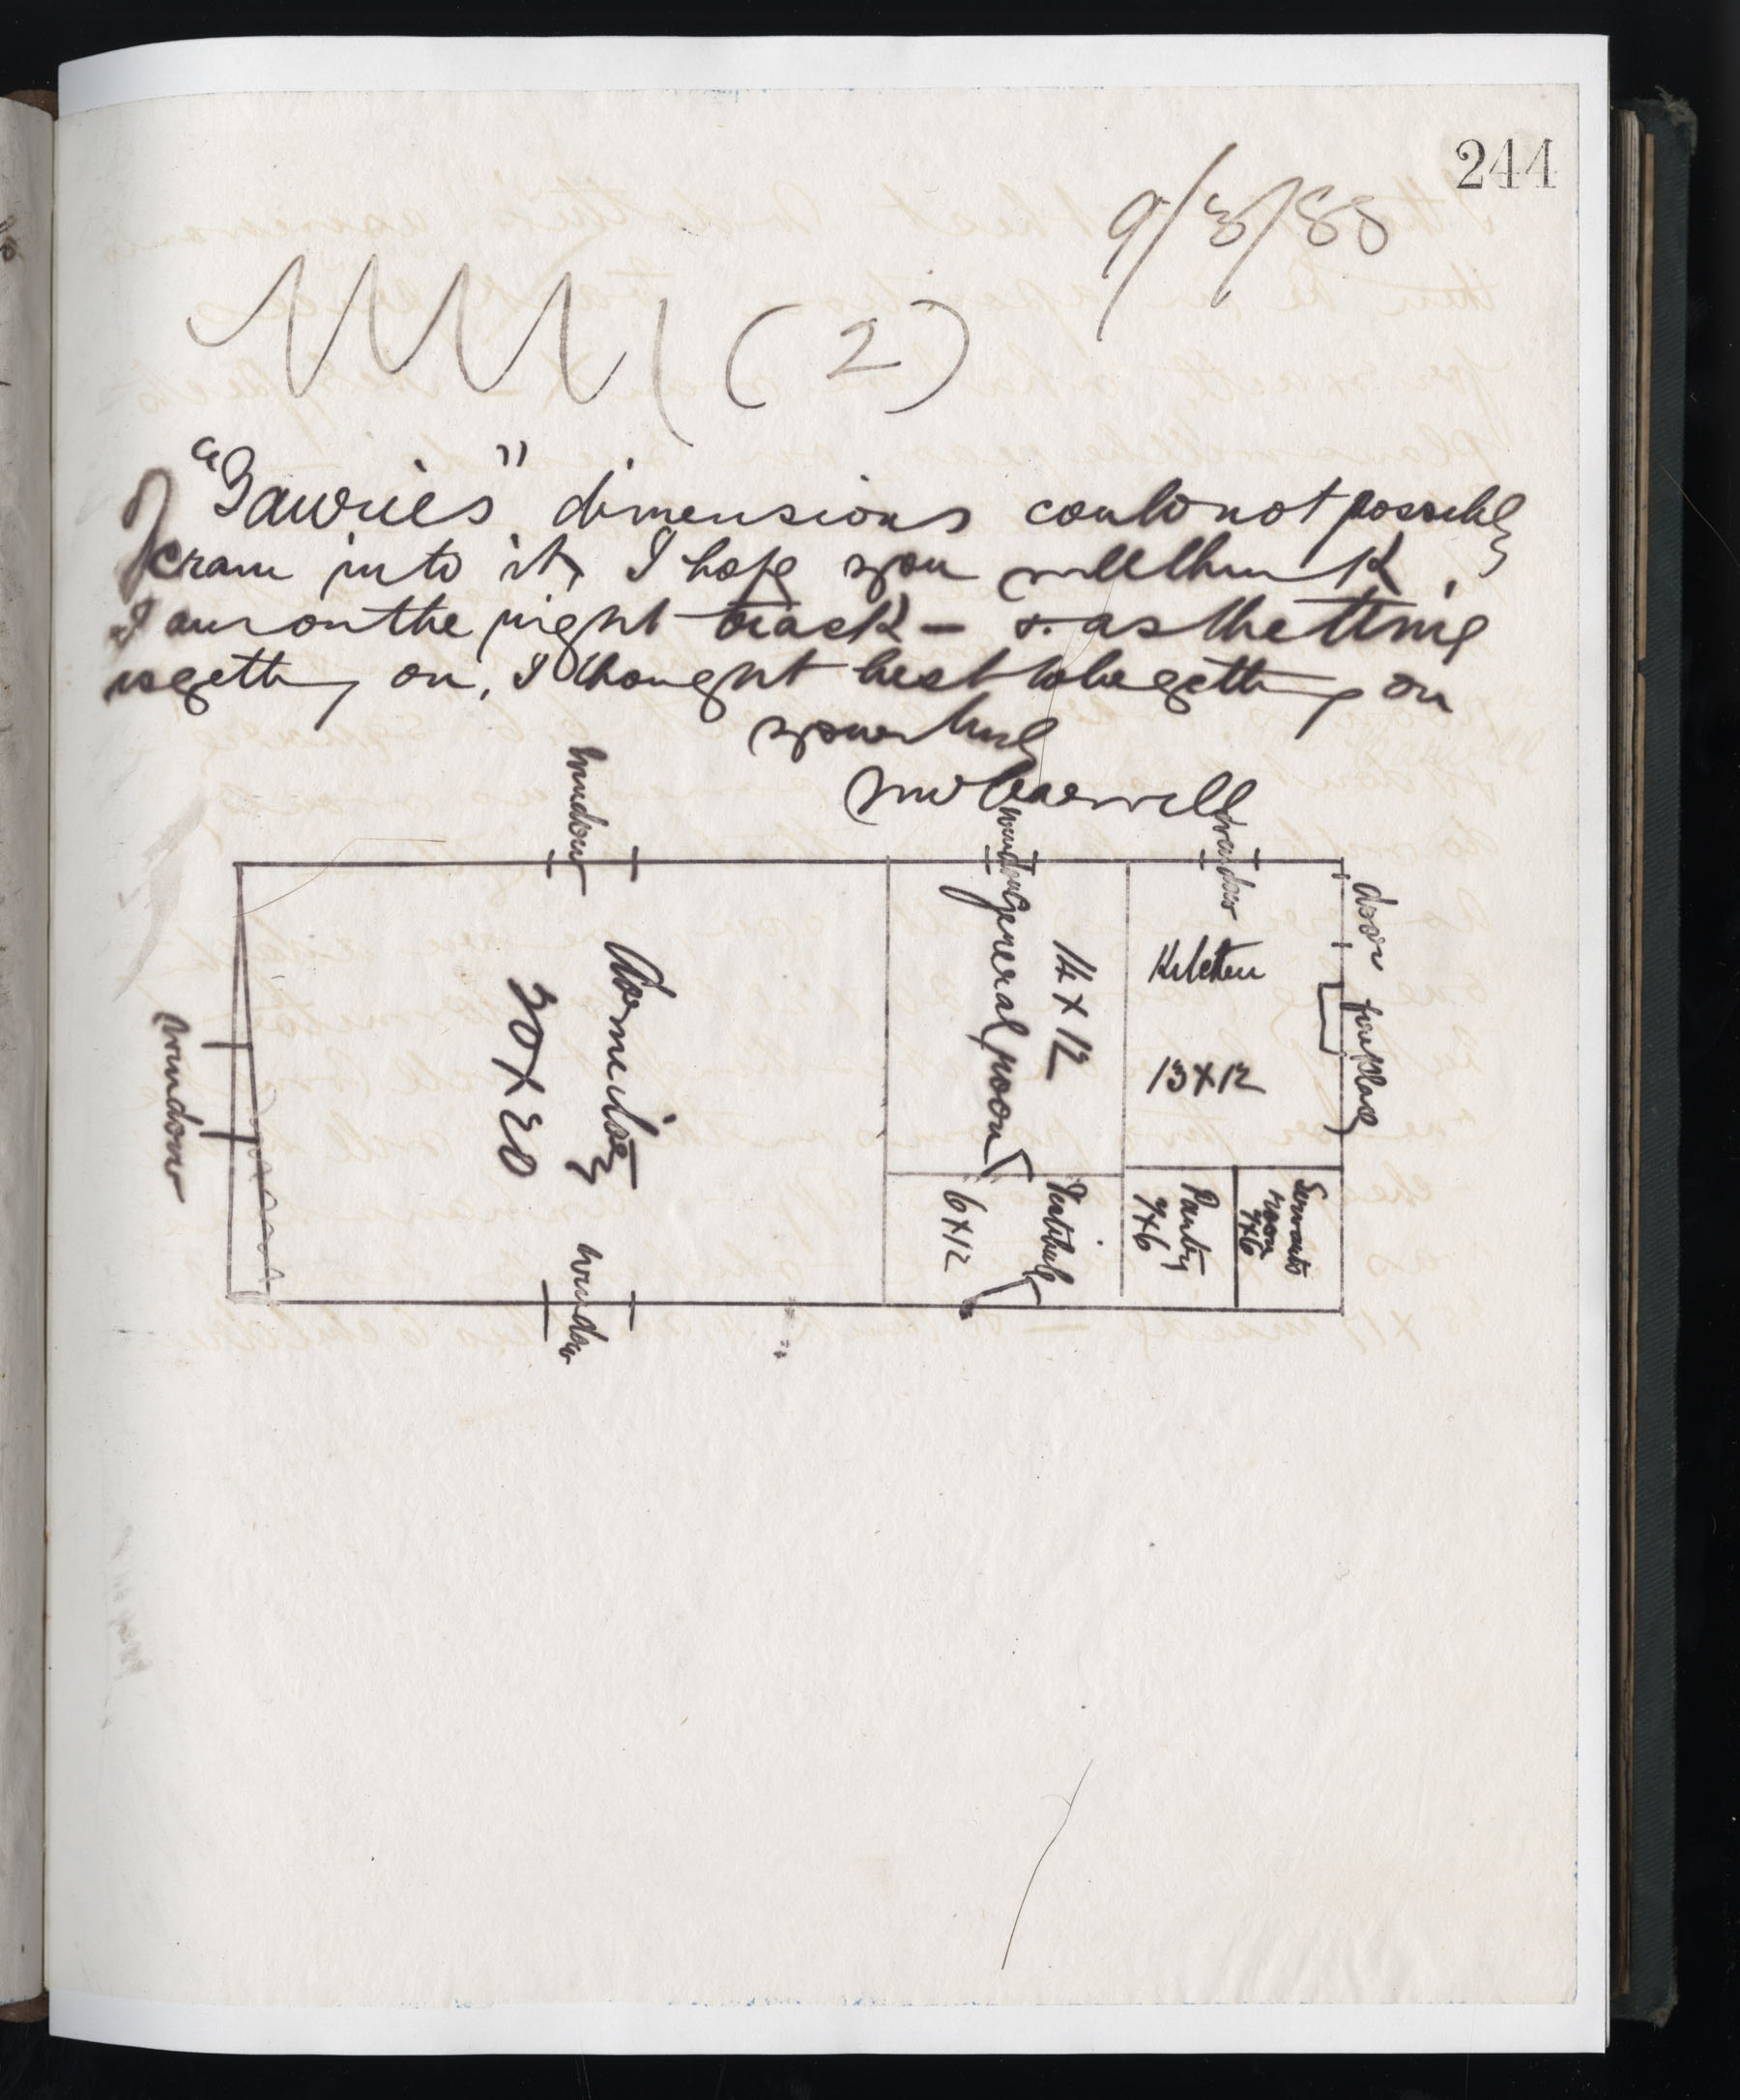 244
9/3/88
(2)
of "Gawries" dimensions could not possibly
cram into it, I hope you will think
I am on the right track — & as the time
is getting on, I thought best to be getting on
yours truly
window
window
window
door
fireplace
Kitchen
13 X 12
14 X 12
General room
Dormitory
30 X 20
window
window
Vestibule
6 X 12
Pantry
7X6
Servants
room
7X6